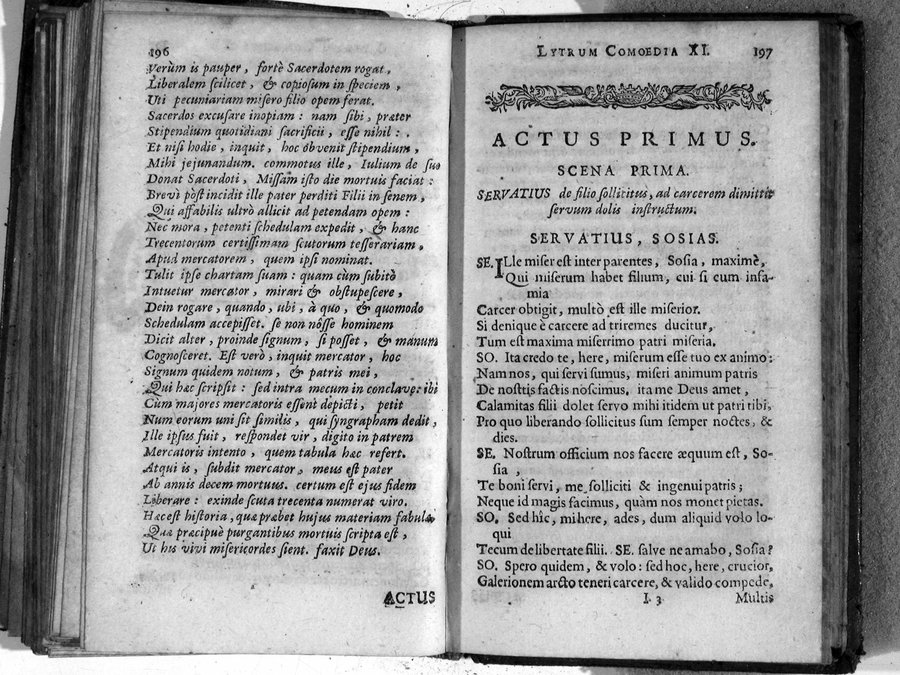 196
Verùm is pauper, fortè Sacerdotem rogat,
Liberalem scilicet, & copiosum in speciem,
Uti pecuniariam misero filio opem ferat.
Sacerdos excusare inopiam: nam sibi, præter
Stipendium quotidiani sacrificii, esse nihil:
Et nisi hodie, inquit, hoc obvenit stipendium,
Mihi jejunandum. commotus ille, Iulium de suo
Donat Sacerdoti, Missam isto die mortuis faciat:
Brevì pòst incidit ille pater perditi Filii in senem,
Qui affabilis ultrò allicit ad petendam opem:
Nec mora, petenti schedulam expedit, & hanc
Trecentorum certissimam scutorum tesserariam,
Apud mercatorem, quem ipsi nominat.
Tulit ipse chartam suam: quam cùm subitò
Intuetur mercator, mirari & obstupescere,
Dein rogare, quando, ubi, à quo, & quomodo
Schedulam accepisset. se non nôsse hominem
Dicit alter, proinde signum, si posset, & manum
Cognosceret. Est verò, inquit mercator, hoc
Signum quidem notum, & patris mei,
Qui hæc scripsit: sed intra mecum in conclave: ibi
Cùm majores mercatoris essent depicti, petit
Num eorum uni sit similis, qui syngrapham dedit,
Ille ipsus fuit, respondet vir, digito in patrem
Mercatoris intento, quem tabula hæc refert.
Atqui is, subdit mercator, meus est pater
Ab annis decem mortuus. certum est ejus fidem
Liberare: exinde scuta trecenta numerat viro.
Hæc est historia, quæ præbet hujus materiam fabulæ
Quæ præcipuè purgantibus mortuis scripta est,
Ut his vivi misericordes sient. faxit Deus.
ACTUS
LYTRUM COMOEDIA XI. 197
ACTUS PRIMUS.
SCENA PRIMA.
SERVATIUS de filio sollicitus, ad carcerem dimittit
servum dolis instructum.
SERVATIUS, SOSIAS.
SE. ILle miser est inter parentes, Sosia, maximè,
Qui miserum habet filium, cui si cum infa-
mia
Carcer obtigit, multò est ille miserior.
Si denique è carcere ad triremes ducitur,
Tum est maxima miserrimo patri miseria.
SO. Ita credo te, here, miserum esse tuo ex animo:
Nam nos, qui servi sumus, miseri animum patris
De nostris factis noscimus. ita me Deus amet,
Calamitas filii dolet servo mihi itidem ut patri tibi,
Pro quo liberando sollicitus sum semper noctes, &
dies.
SE. Nostrum officium nos facere æquum est, So-
sia,
Te boni servi, me solliciti & ingenui patris;
Neque id magis facimus, quàm nos monet pietas.
SO. Sed hîc, mi here, ades, dum aliquid volo lo-
qui
Tecum de libertate filii. SE. salve ne amabo, Sosia?
SO. Spero quidem, & volo: sed hoc, here, crucior,
Galerionem arcto teneri carcere, & valido compede,
I 3 Multis